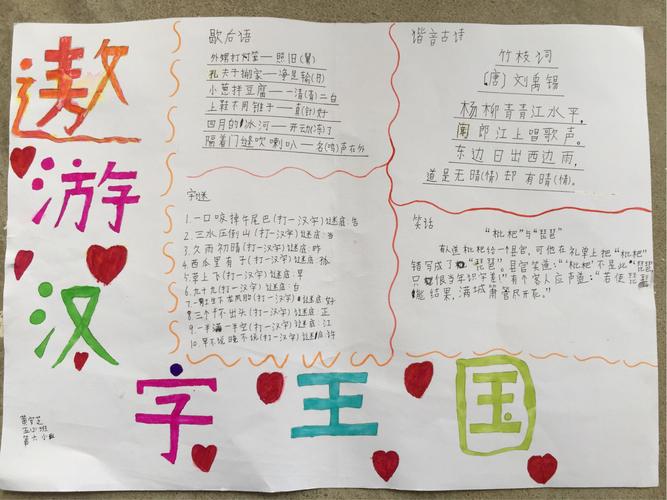 遨
游
汉
字 王 国
歇后语
外甥打灯笼——照旧(舅)
孔夫子搬家——净是输(书)
小葱拌豆腐——一清(青)二白
上鞋不用锥子——真(针)好
四月的冰河——开动(冻)了
隔着门缝吹喇叭——名(鸣)声在外
谐音古诗
竹枝词
(唐)刘禹锡
杨柳青青江水平,
闻郎江上唱歌声。
东边日出西边雨,
道是无晴(情)却有晴(情)。
字谜
1.一口咬掉牛尾巴(打一汉字)谜底:告
2.三水压倒山(打一汉字)谜底:当
3.久雨初晴(打一汉字)谜底:昨
4.西瓜里有子(打一汉字)谜底:孤
5.草上飞(打一汉字)谜底:早
6.九十九(打一汉字)谜底:白
8.三个千不出头(打一汉字)谜底:正
9.一半满一半空(打一汉字)谜底:江
10.早不说晚不说(打一汉字)谜底:许
笑话
"枇杷"与"琵琶"
有人送枇杷给一个县官,可他在礼单上把"枇杷"
错写成了"琵琶"。县官笑道:"'枇杷'不是此'琵琶'
只恨当年识字差!"有个客人应声道:"若使琵琶
能结果,满城箫管尽开花。"
五(2)班
第六小组